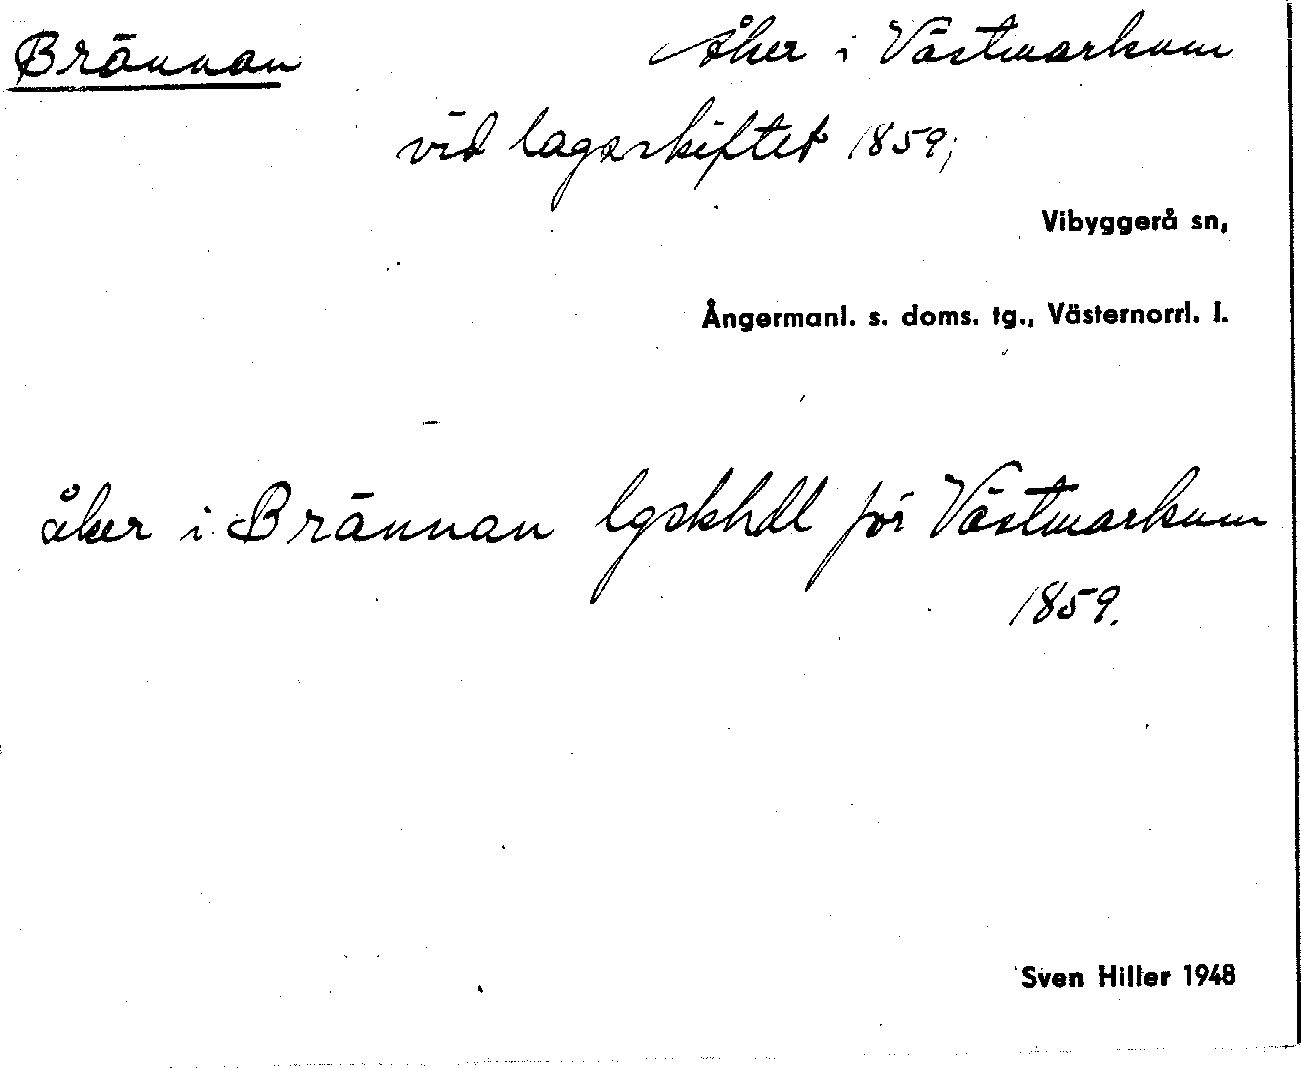 Brännan Åker i Västmarkum
vid lagaskiftet 1859;
Vibyggerå sn,
Ångermanl. s. doms. tg., Västernorrl. l.
åker i Brännan lgskhdl för Västmarkum
1859.
Sven Hiller 1948